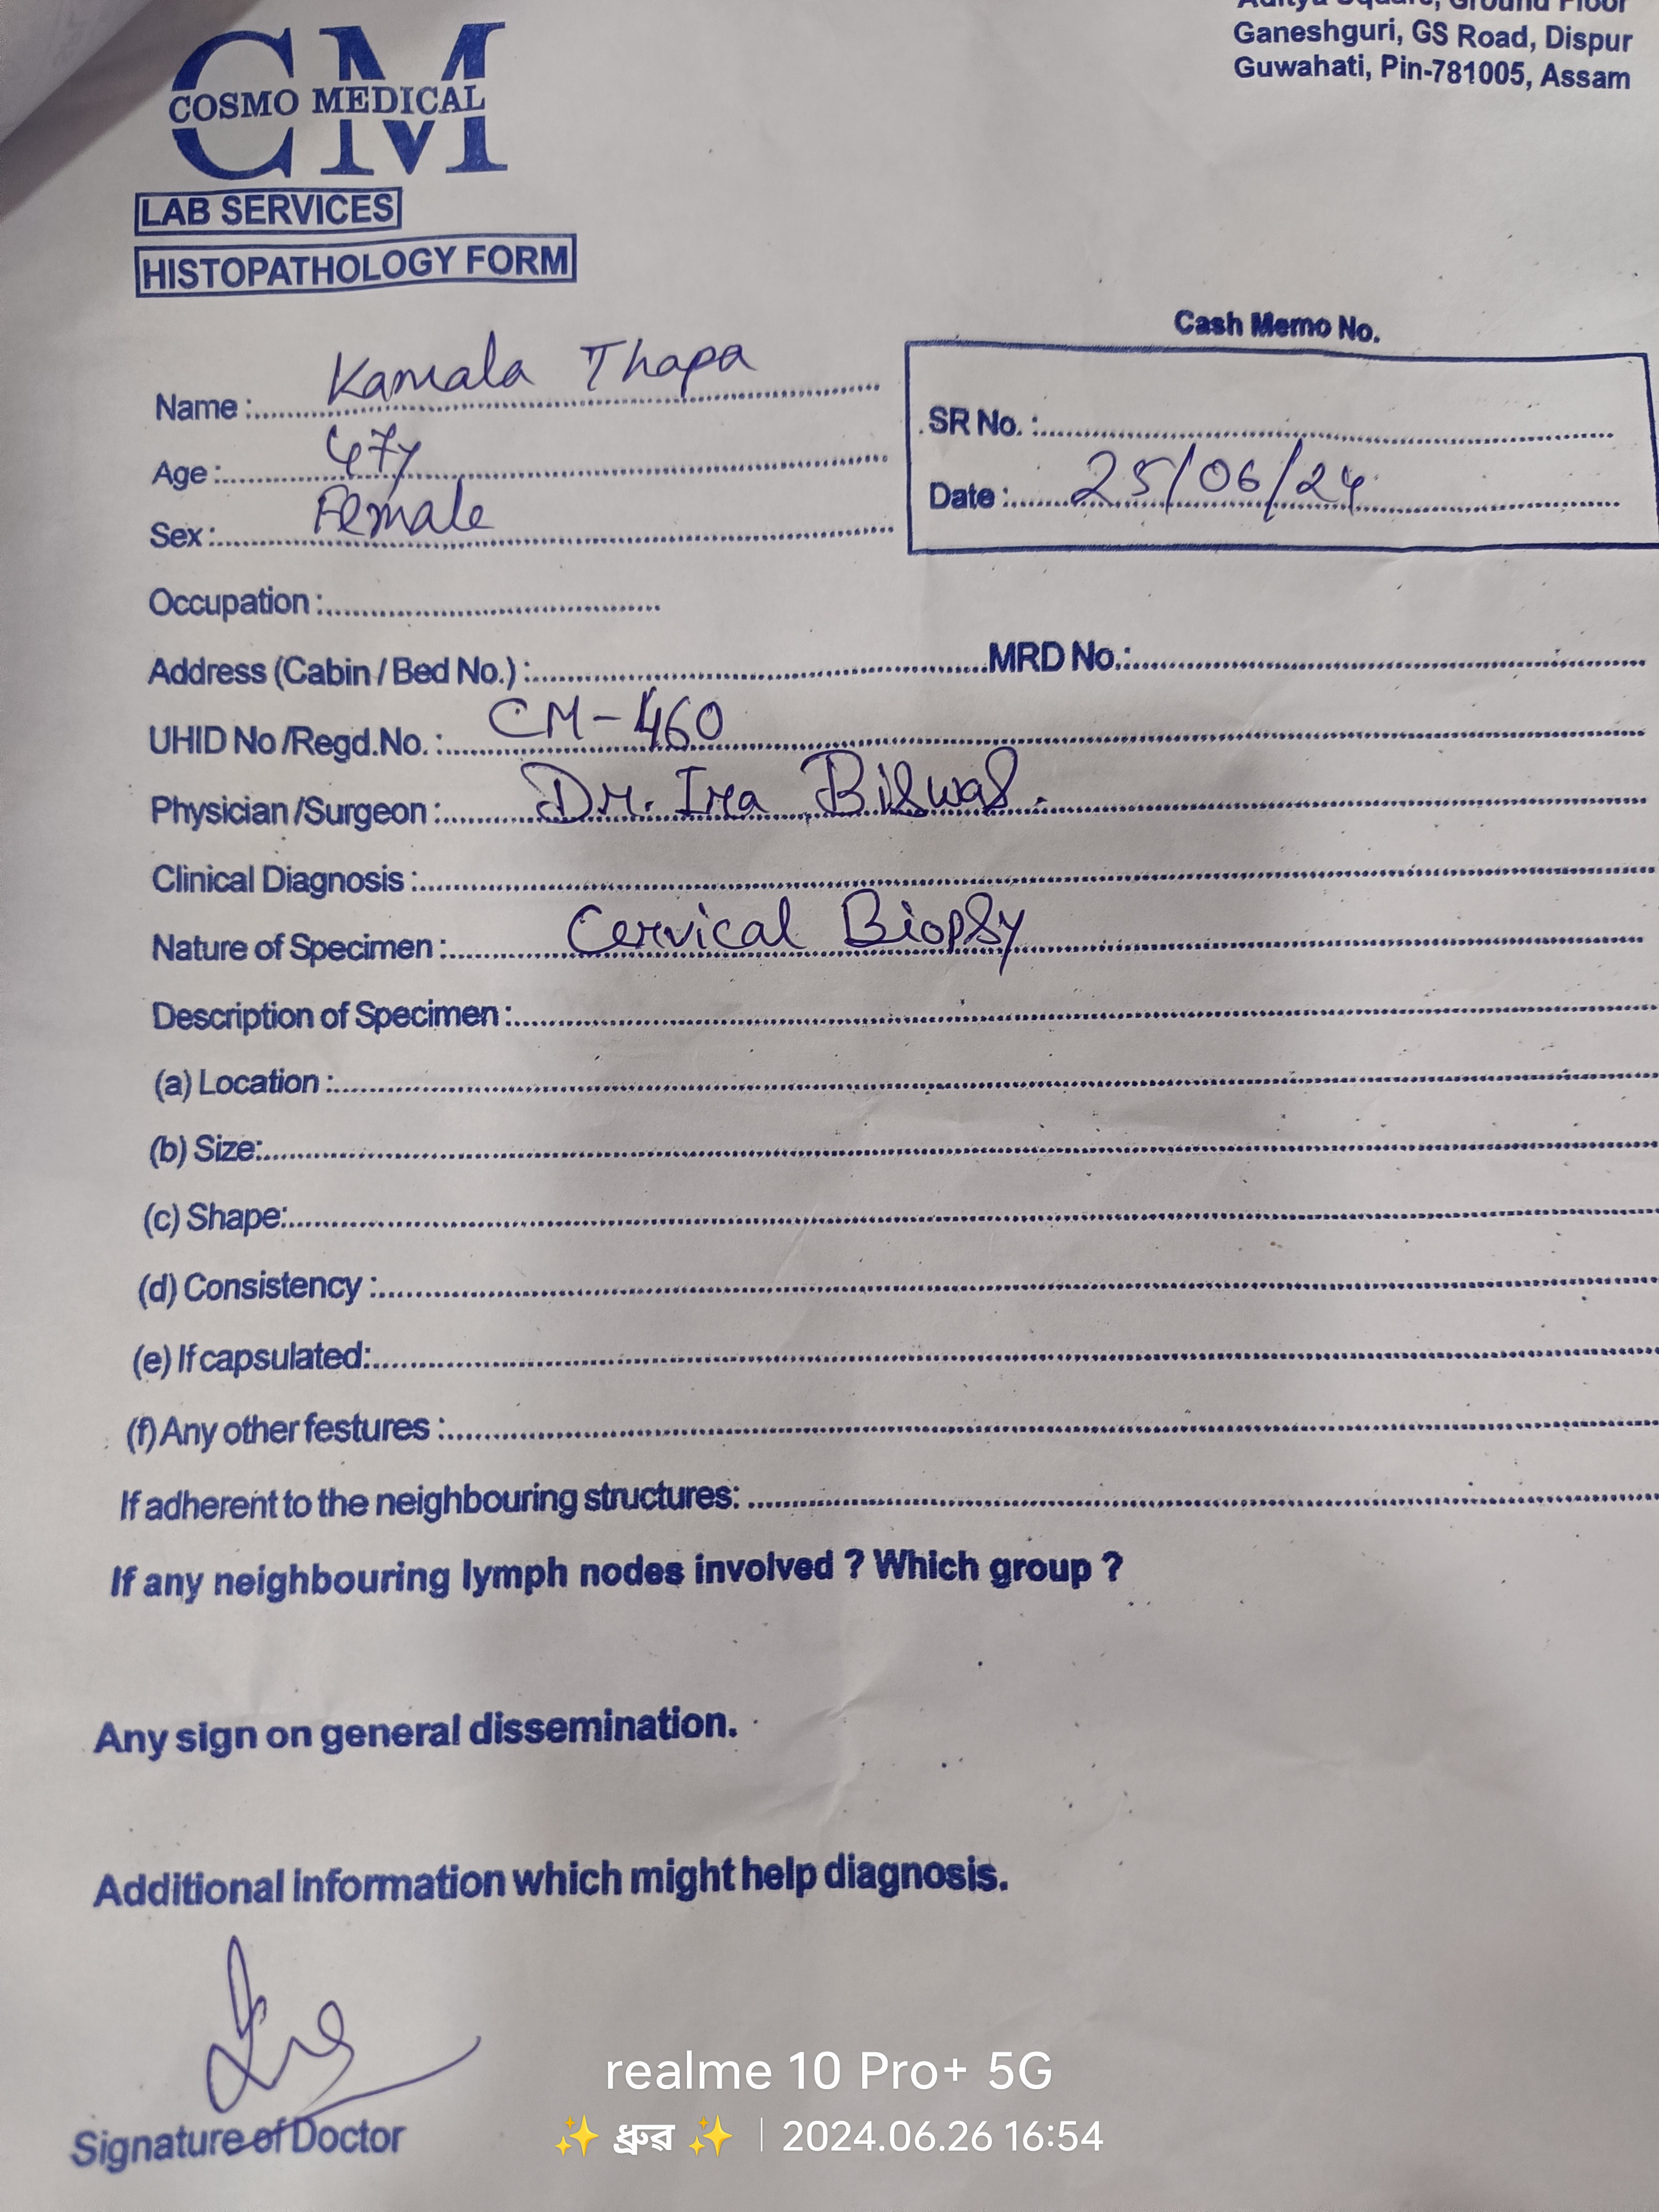 Aditya Square, Ground Floor
Ganeshguri, GS Road, Dispur
Guwahati, Pin-781005, Assam
CM
COSMO MEDICAL
LAB SERVICES
HISTOPATHOLOGY FORM
Cash Memo No.
Name : Kamala Thapa
Age : 47y
Sex : Female
SR No. :
Date : 25/06/24
Occupation :
Address (Cabin / Bed No.) : MRD No.:
UHID No /Regd.No. : CM-460
Physician /Surgeon : Dr. Ira Biswas.
Clinical Diagnosis :
Nature of Specimen : Cervical Biopsy
Description of Specimen :
(a) Location :
(b) Size:
(c) Shape:
(d) Consistency :
(e) If capsulated:
(f) Any other festures :
If adherent to the neighbouring structures:
If any neighbouring lymph nodes involved ? Which group ?
Any sign on general dissemination.
Additional information which might help diagnosis.
Signature of Doctor
realme 10 Pro+ 5G
✨ ধ্রুৱ ✨ | 2024.06.26 16:54